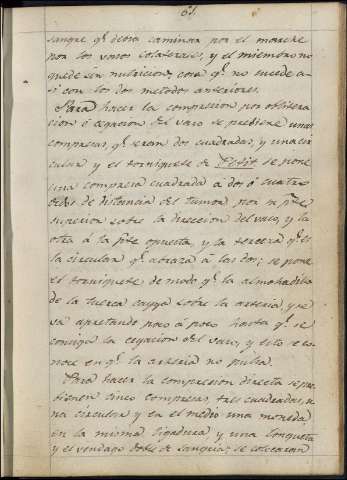 61.
sangre qe. debia caminar por el
por los vasos colaterales, y el miembro no
quede sin nutricion, cosa qe. no sucede a-
si con los dos metodos anteriores.
Para hacer la compresion por oblitera
cion ó cegacion del vaso se previene unas
compresas, qe. seran dos cuadradas, y una cir
cular y el torniquete de Petit se pone
una compresa cuadrada a dos ó cuatro
dedos de distancia del tumor, por su pte.
superior sobre la direccion del vaso, y la
otra á la pte. opuesta, y la tercera qe. es
la circular qe. abraza á las dos; se pone
el torniquete de modo qe. la almohadilla
de la tuerca cayga sobre la arteria, y se
va apretando poco á poco hasta qe. se
consiga la cegacion del vaso, y esto se co-
noce en qe. la arteria no pulsa.
Para hacer la compresion directa se pre-
bienen cinco compresas, tres cuadradas, u-
na circular y en el medio una moneda,
en la misma ligadura y una longueta
y el vendage doble de sangria; se colocaran